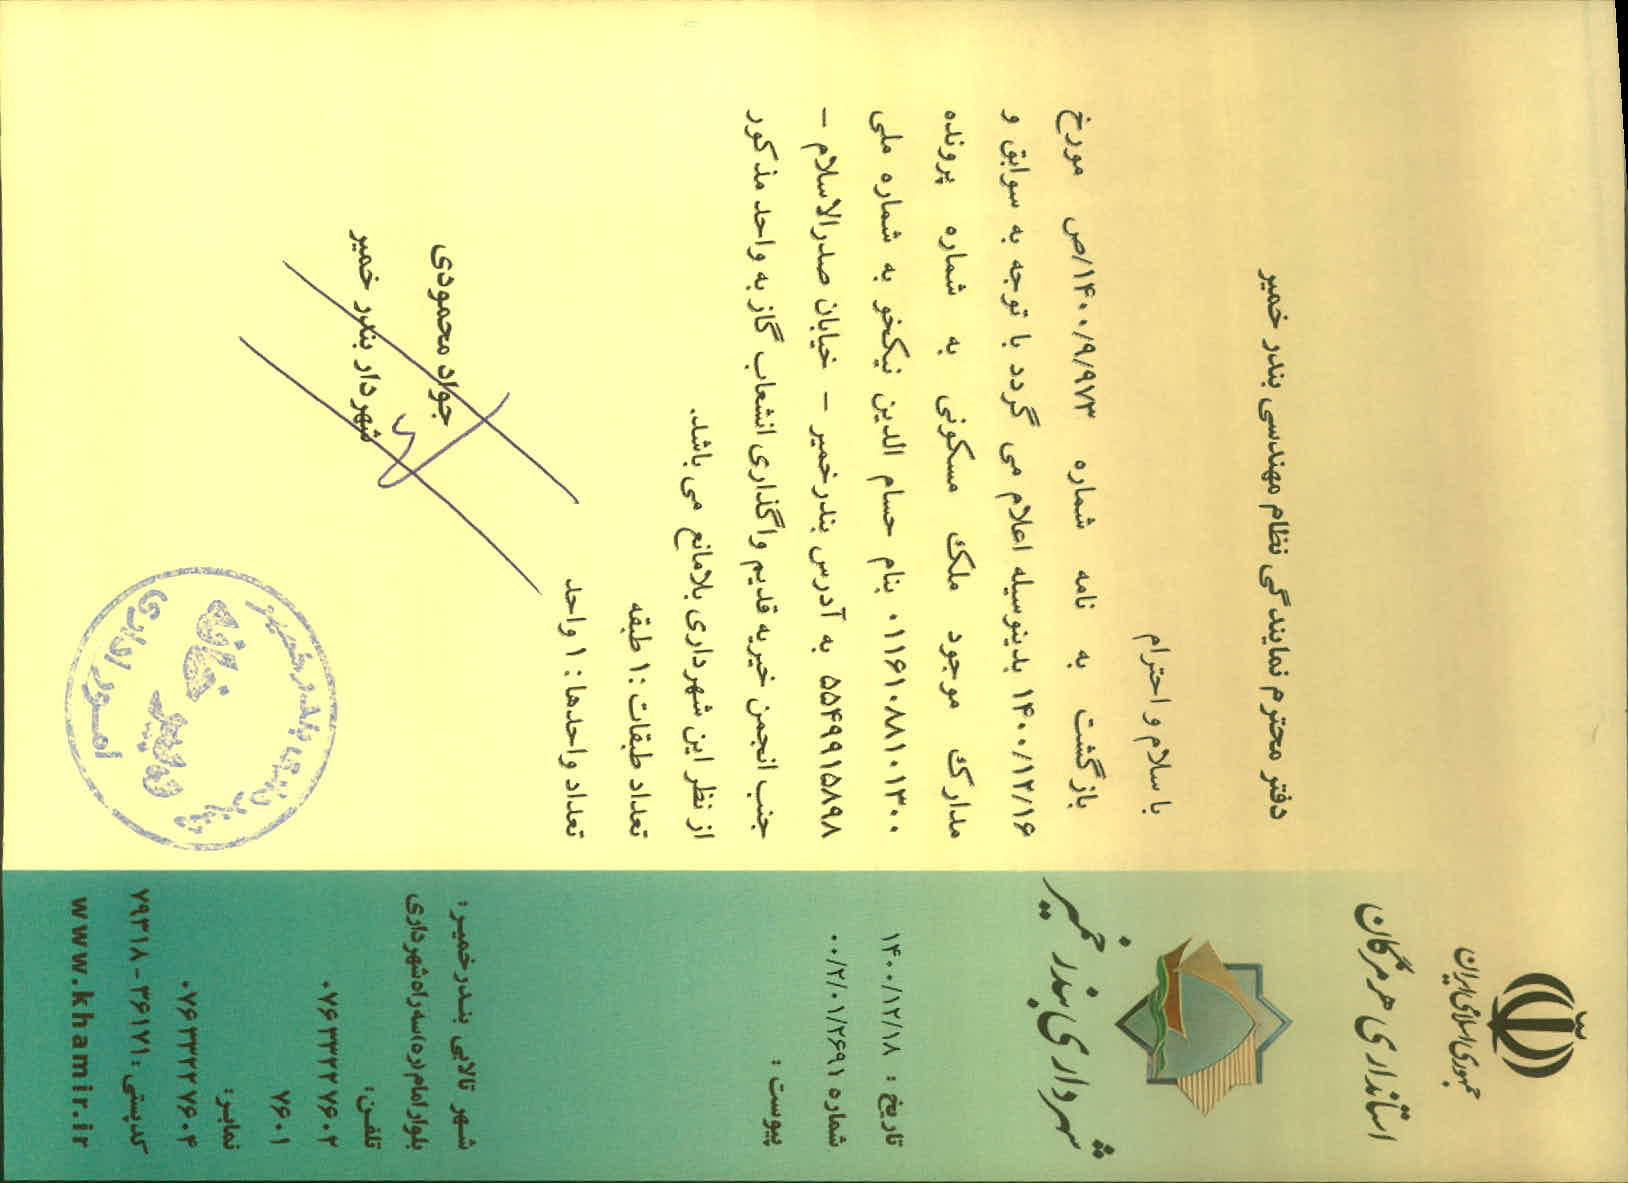 جمهوری اسلامی ایران
استانداری هرمزگان
شهرداری بندر خمیر
تاریخ : ۱۴۰۰/۱۲/۱۸
شماره ۰۰/۲/۰۱/۲۶۹۱
پیوست :
دفتر محترم نمایندگی نظام مهندسی بندر خمیر
با سلام و احترام
بازگشت به نامه شماره ۱۴۰۰/۹/۹۷۳/ص مورخ
۱۴۰۰/۱۲/۱۶ بدینوسیله اعلام می گردد با توجه به سوابق و
مدارک موجود ملک مسکونی به شماره پرونده
۰۱۱۶۱۰۸۸۱۰۱۳۰۰ بنام حسام الدین نیکخو به شماره ملی
۵۵۴۹۹۱۵۸۹۸ به آدرس بندرخمیر – خیابان صدرالاسلام –
جنب انجمن خیریه قدیم واگذاری انشعاب گاز به واحد مذکور
از نظر این شهرداری بلامانع می باشد.
تعداد طبقات : ۱ طبقه
تعداد واحدها : ۱ واحد
جواد محمودی
شهردار بندر خمیر
شهرداری بندر خمیر
امور اداری
شهر تالابی بندرخمیر :
بلوار امام (ره)سه راه شهرداری
تلفن:
۰۷۶۳۳۳۲۷۶۰۲
۷۶۰۱
نمابر:
۰۷۶۳۳۳۲۷۶۰۴
کدپستی : ۳۶۱۷۱ - ۷۹۳۱۸
www.khamir.ir